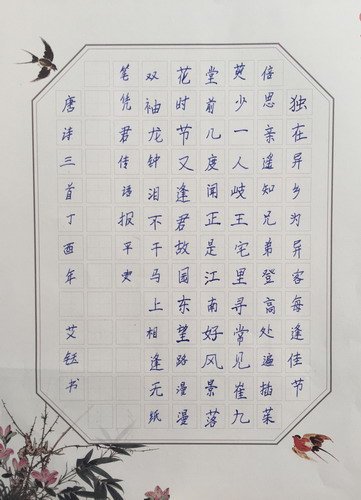 独在异乡为异客每逢佳节
倍思亲遥知兄弟登高处遍插茱
萸少一人岐王宅里寻常见崔九
堂前几度闻正是江南好风景落
花时节又逢君故园东望路漫漫
双袖龙钟泪不干马上相逢无纸
笔凭君传语报平安
唐诗三首丁酉年 艾钰书